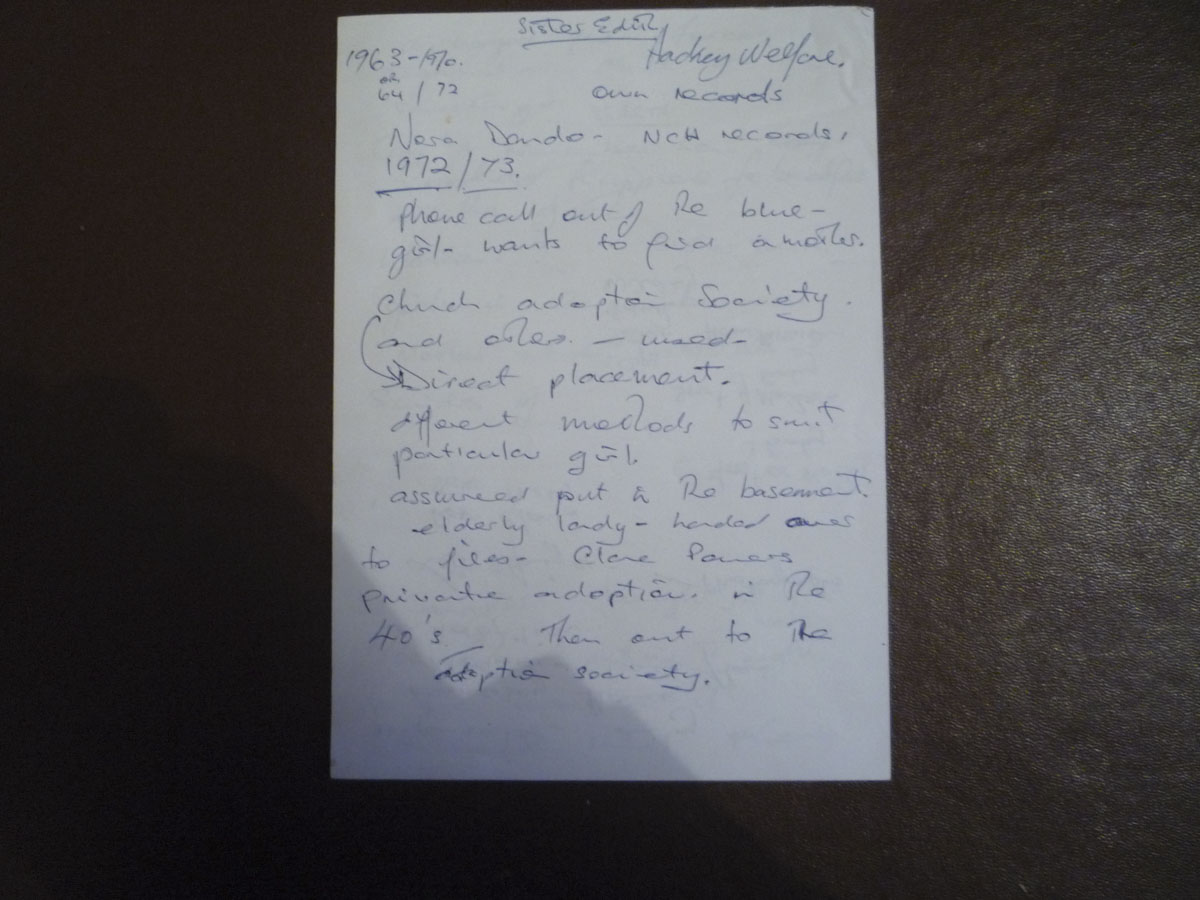 Sister Edith
1963-1970. Hackney Welfare.
or
64/72 own records
Nora Dando - NCH records.
1972/73.
phone call out of the blue -
girl - wants to find a mother.
Church adoption Society.
(and others. - used -
Direct placement.
different methods to suit
particular girl.
assumed put in the basement.
elderly lady - handed over
to files - Clare
private adoption. in the
40's Then out to the
adoption society.